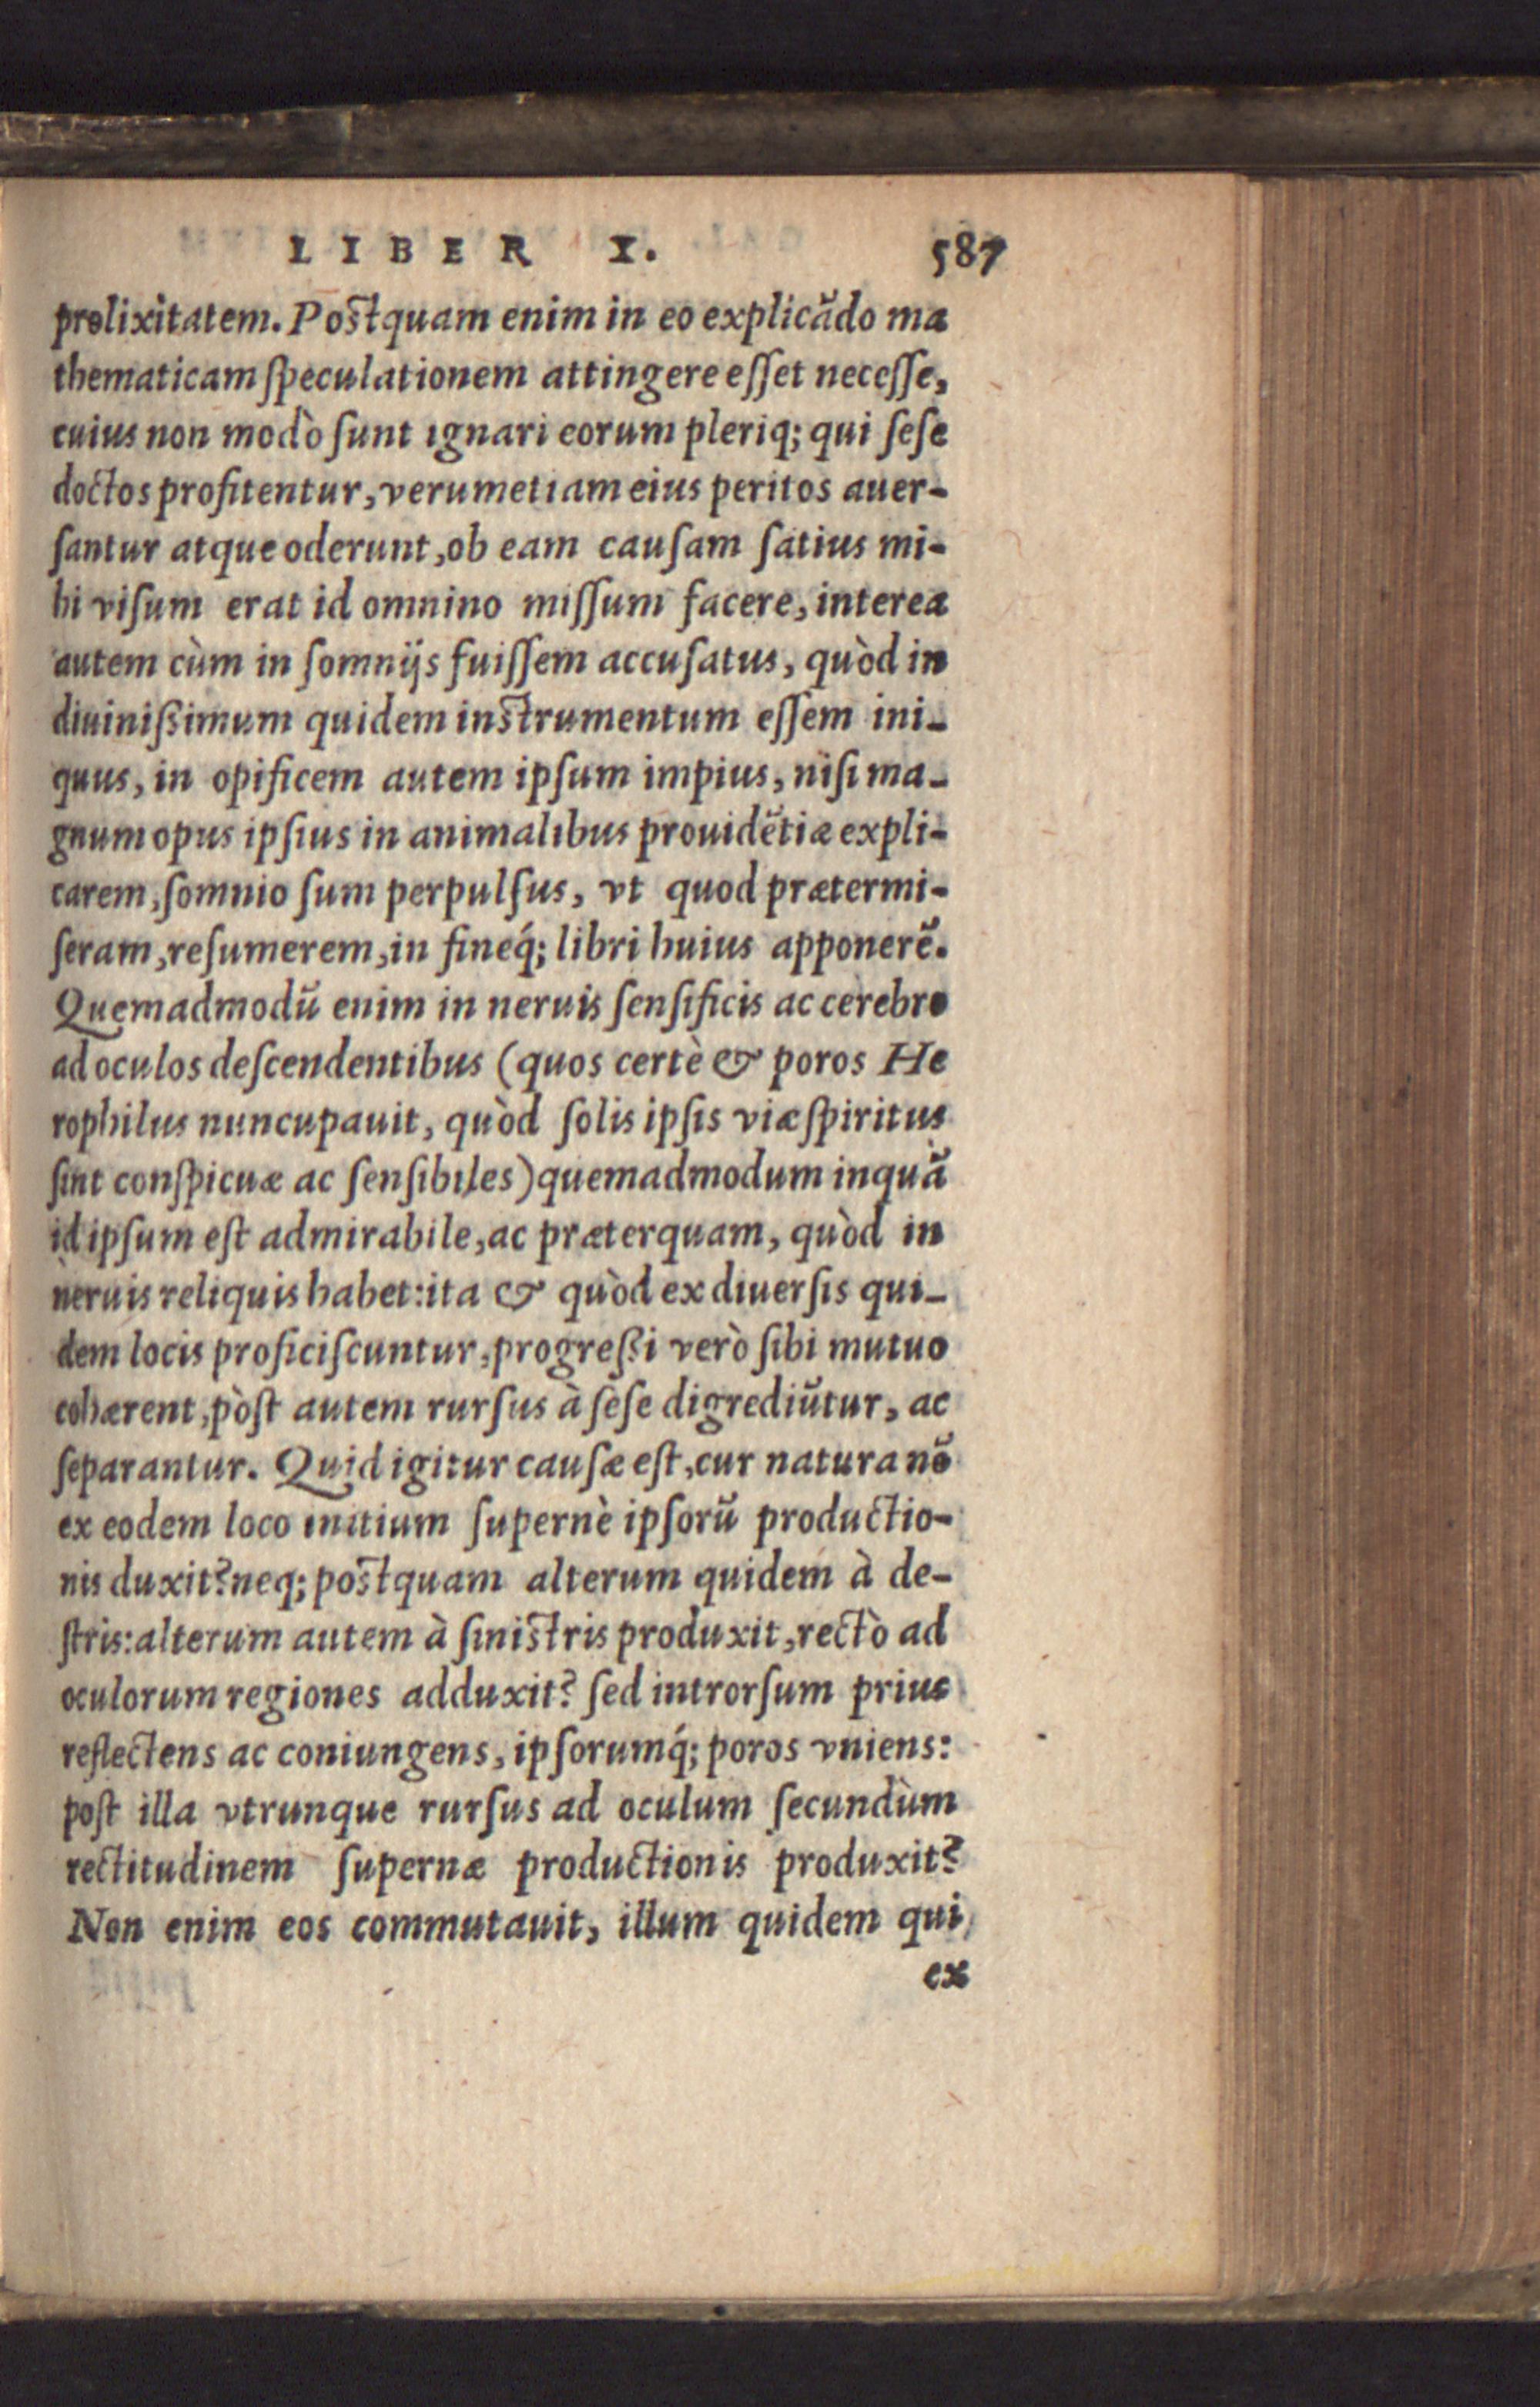 LIBER I. 587
prolixitatem. Postquam enim in eo explicãdo ma
thematicam ſpeculationem attingere eſſet neceſſe,
cuius non modò ſunt ignari eorum pleriq; qui ſeſe
doctos profitentur, verumetiam eius peritos auer-
ſantur atque oderunt, ob eam cauſam ſatius mi-
hi viſum erat id omnino miſſum facere, interea
autem cùm in ſomnijs fuiſſem accuſatus, quòd in
diuinißimum quidem instrumentum eſſem ini-
quus, in opificem autem ipſum impius, niſi ma-
gnum opus ipſius in animalibus prouidẽtiæ expli-
carem, ſomnio ſum perpulſus, vt quod prætermi-
ſeram, reſumerem, in fineq́; libri huius apponerẽ.
Quemadmodũ enim in neruis ſenſificis ac cerebro
ad oculos deſcendentibus (quos certè & poros He
rophilus nuncupauit, quòd ſolis ipſis viæ ſpiritus
ſint conſpicuæ ac ſenſibiles) quemadmodum inquã
id ipſum eſt admirabile, ac præterquam, quòd in
neruis reliquis habet: ita & quòd ex diuerſis qui-
dem locis proficiſcuntur, progreßi verò ſibi mutuo
cohærent, pòſt autem rurſus à ſeſe digrediũtur, ac
ſeparantur. Quid igitur cauſæ eſt, cur natura nõ
ex eodem loco initium ſupernè ipſorũ productio-
nis duxit? neq; postquam alterum quidem à de-
ſtris: alterum autem à ſinistris produxit, rectò ad
oculorum regiones adduxit? ſed introrſum prius
reflectens ac coniungens, ipſorumq́; poros vniens:
poſt illa vtrunque rurſus ad oculum ſecundùm
rectitudinem ſupernæ productionis produxit?
Non enim eos commutauit, illum quidem qui
ex